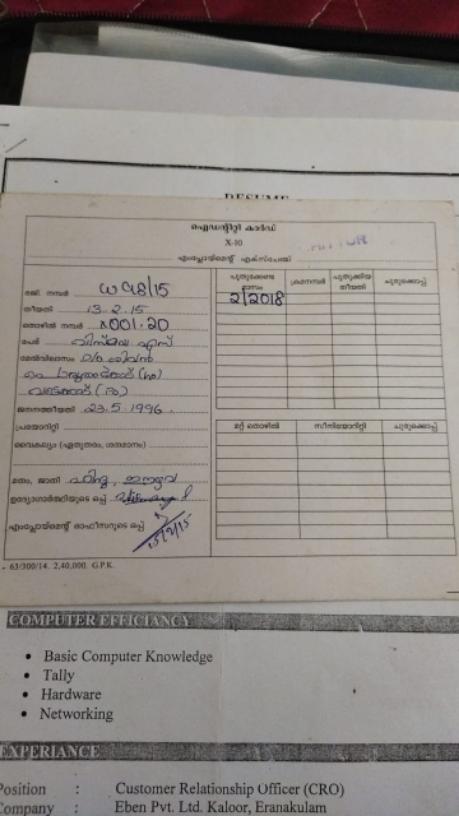 RESUME
ഐഡന്റിറ്റി കാർഡ്
X-10
എംപ്ലോയ്മെന്റ് എക്സ്ചേഞ്ച്
രജി. നമ്പർ W 918/15
തീയതി 13.2.15
തൊഴിൽ നമ്പർ X001.20
പേര് വിസ്മയ എസ്
മേൽവിലാസം D/o ശിവൻ
(ho)
(Po)
ജനനത്തീയതി 23.5.1996.
പ്രയോറിറ്റി
വൈകല്യം (ഏതുതരം, ശതമാനം)
മതം, ജാതി ഹിന്ദു, ഈഴവ
ഉദ്യോഗാർത്ഥിയുടെ ഒപ്പ്
എംപ്ലോയ്മെന്റ് ഓഫീസറുടെ ഒപ്പ്
13/2/15
പുതുക്കേണ്ട മാസം ക്രമനമ്പർ പുതുക്കിയ തീയതി ചുരുക്കൊപ്പ്
2/2018
മറ്റ് തൊഴിൽ സീനിയോറിറ്റി ചുരുക്കൊപ്പ്
63/300/14. 2,40,000. G.P.K.
COMPUTER EFFICIANCY
• Basic Computer Knowledge
• Tally
• Hardware
• Networking
EXPERIANCE
Position : Customer Relationship Officer (CRO)
Company : Eben Pvt. Ltd. Kaloor, Eranakulam